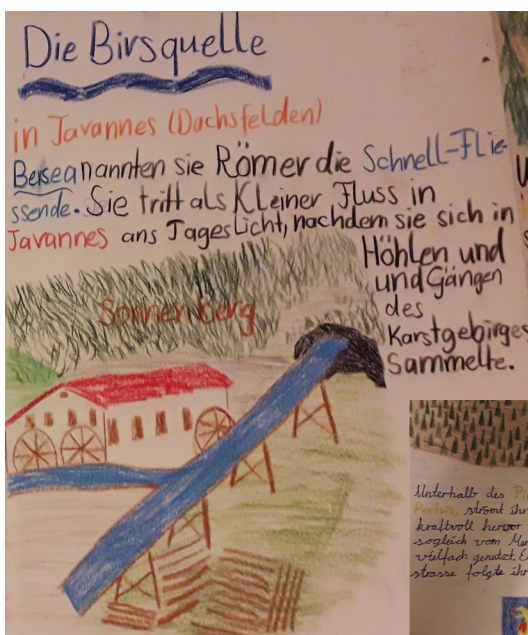 Die Birsquelle
in Tavannes (Dachsfelden)
Bersea nannten sie Römer die Schnell-Flie-
ssende. Sie tritt als Kleiner Fluss in
Tavannes ans Tageslicht, nachdem sie sich in
Höhlen und
und Gängen
des
Karstgebirges
Sammelte.
Sonnenberg
Unterhalb des
Pertuis, strömt ihr
kraftvoll hervor
sogleich vom
vielfach genutzt.
strasse folgte ihr